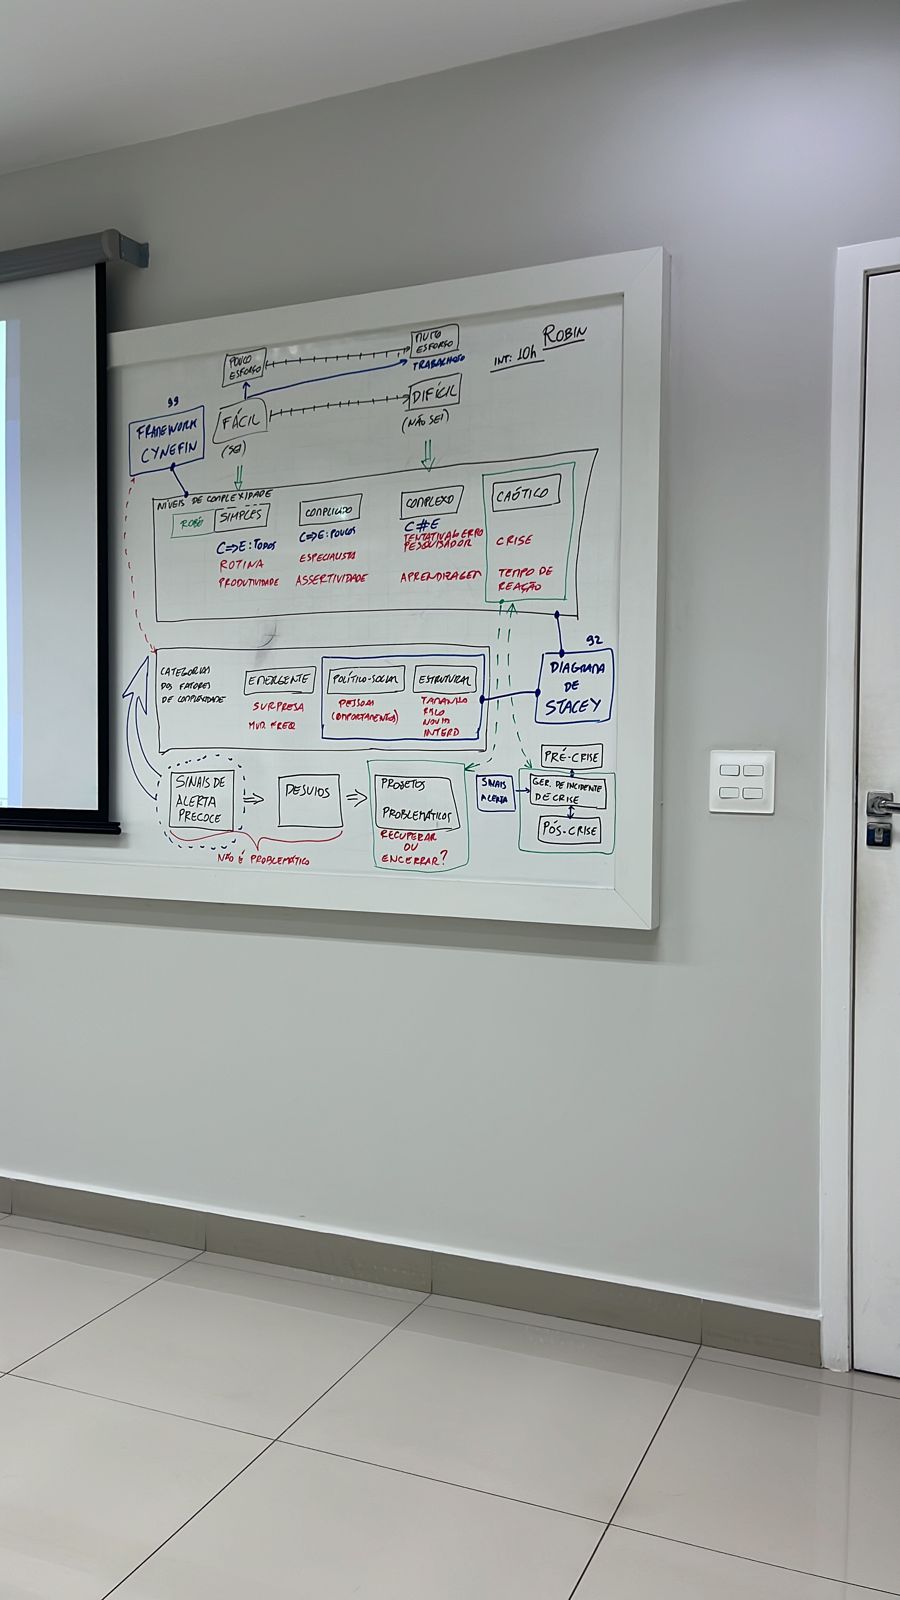 ROBIN
INT: 10h
POUCO
ESFORÇO
MUITO
ESFORÇO
TRABALHOSO
99
FRAMEWORK
CYNEFIN
FÁCIL
(SEI)
DIFÍCIL
(NÃO SEI)
NÍVEIS DE COMPLEXIDADE
ROBÔ
SIMPLES
C=>E: TODOS
ROTINA
PRODUTIVIDADE
COMPLICADO
C=>E: POUCOS
ESPECIALISTA
ASSERTIVIDADE
COMPLEXO
C#E
TENTATIVA&ERRO
PESQUISADOR
APRENDIZAGEM
CAÓTICO
CRISE
TEMPO DE
REAÇÃO
CATEGORIAS
DOS FATORES
DE COMPLEXIDADE
EMERGENTE
SURPRESA
MUD. FREQ
POLÍTICO-SOCIAL
PESSOAS
(COMPORTAMENTOS)
ESTRUTURAL
TAMANHO
NOVID
INTERD
92
DIAGRAMA
DE
STACEY
SINAIS DE
ALERTA
PRECOCE
DESVIOS
NÃO É PROBLEMÁTICO
PROJETOS
PROBLEMÁTICOS
RECUPERAR
OU
ENCERRAR?
SINAIS
ALERTA
PRÉ-CRISE
GER. DE INCIDENTE
DE CRISE
PÓS-CRISE